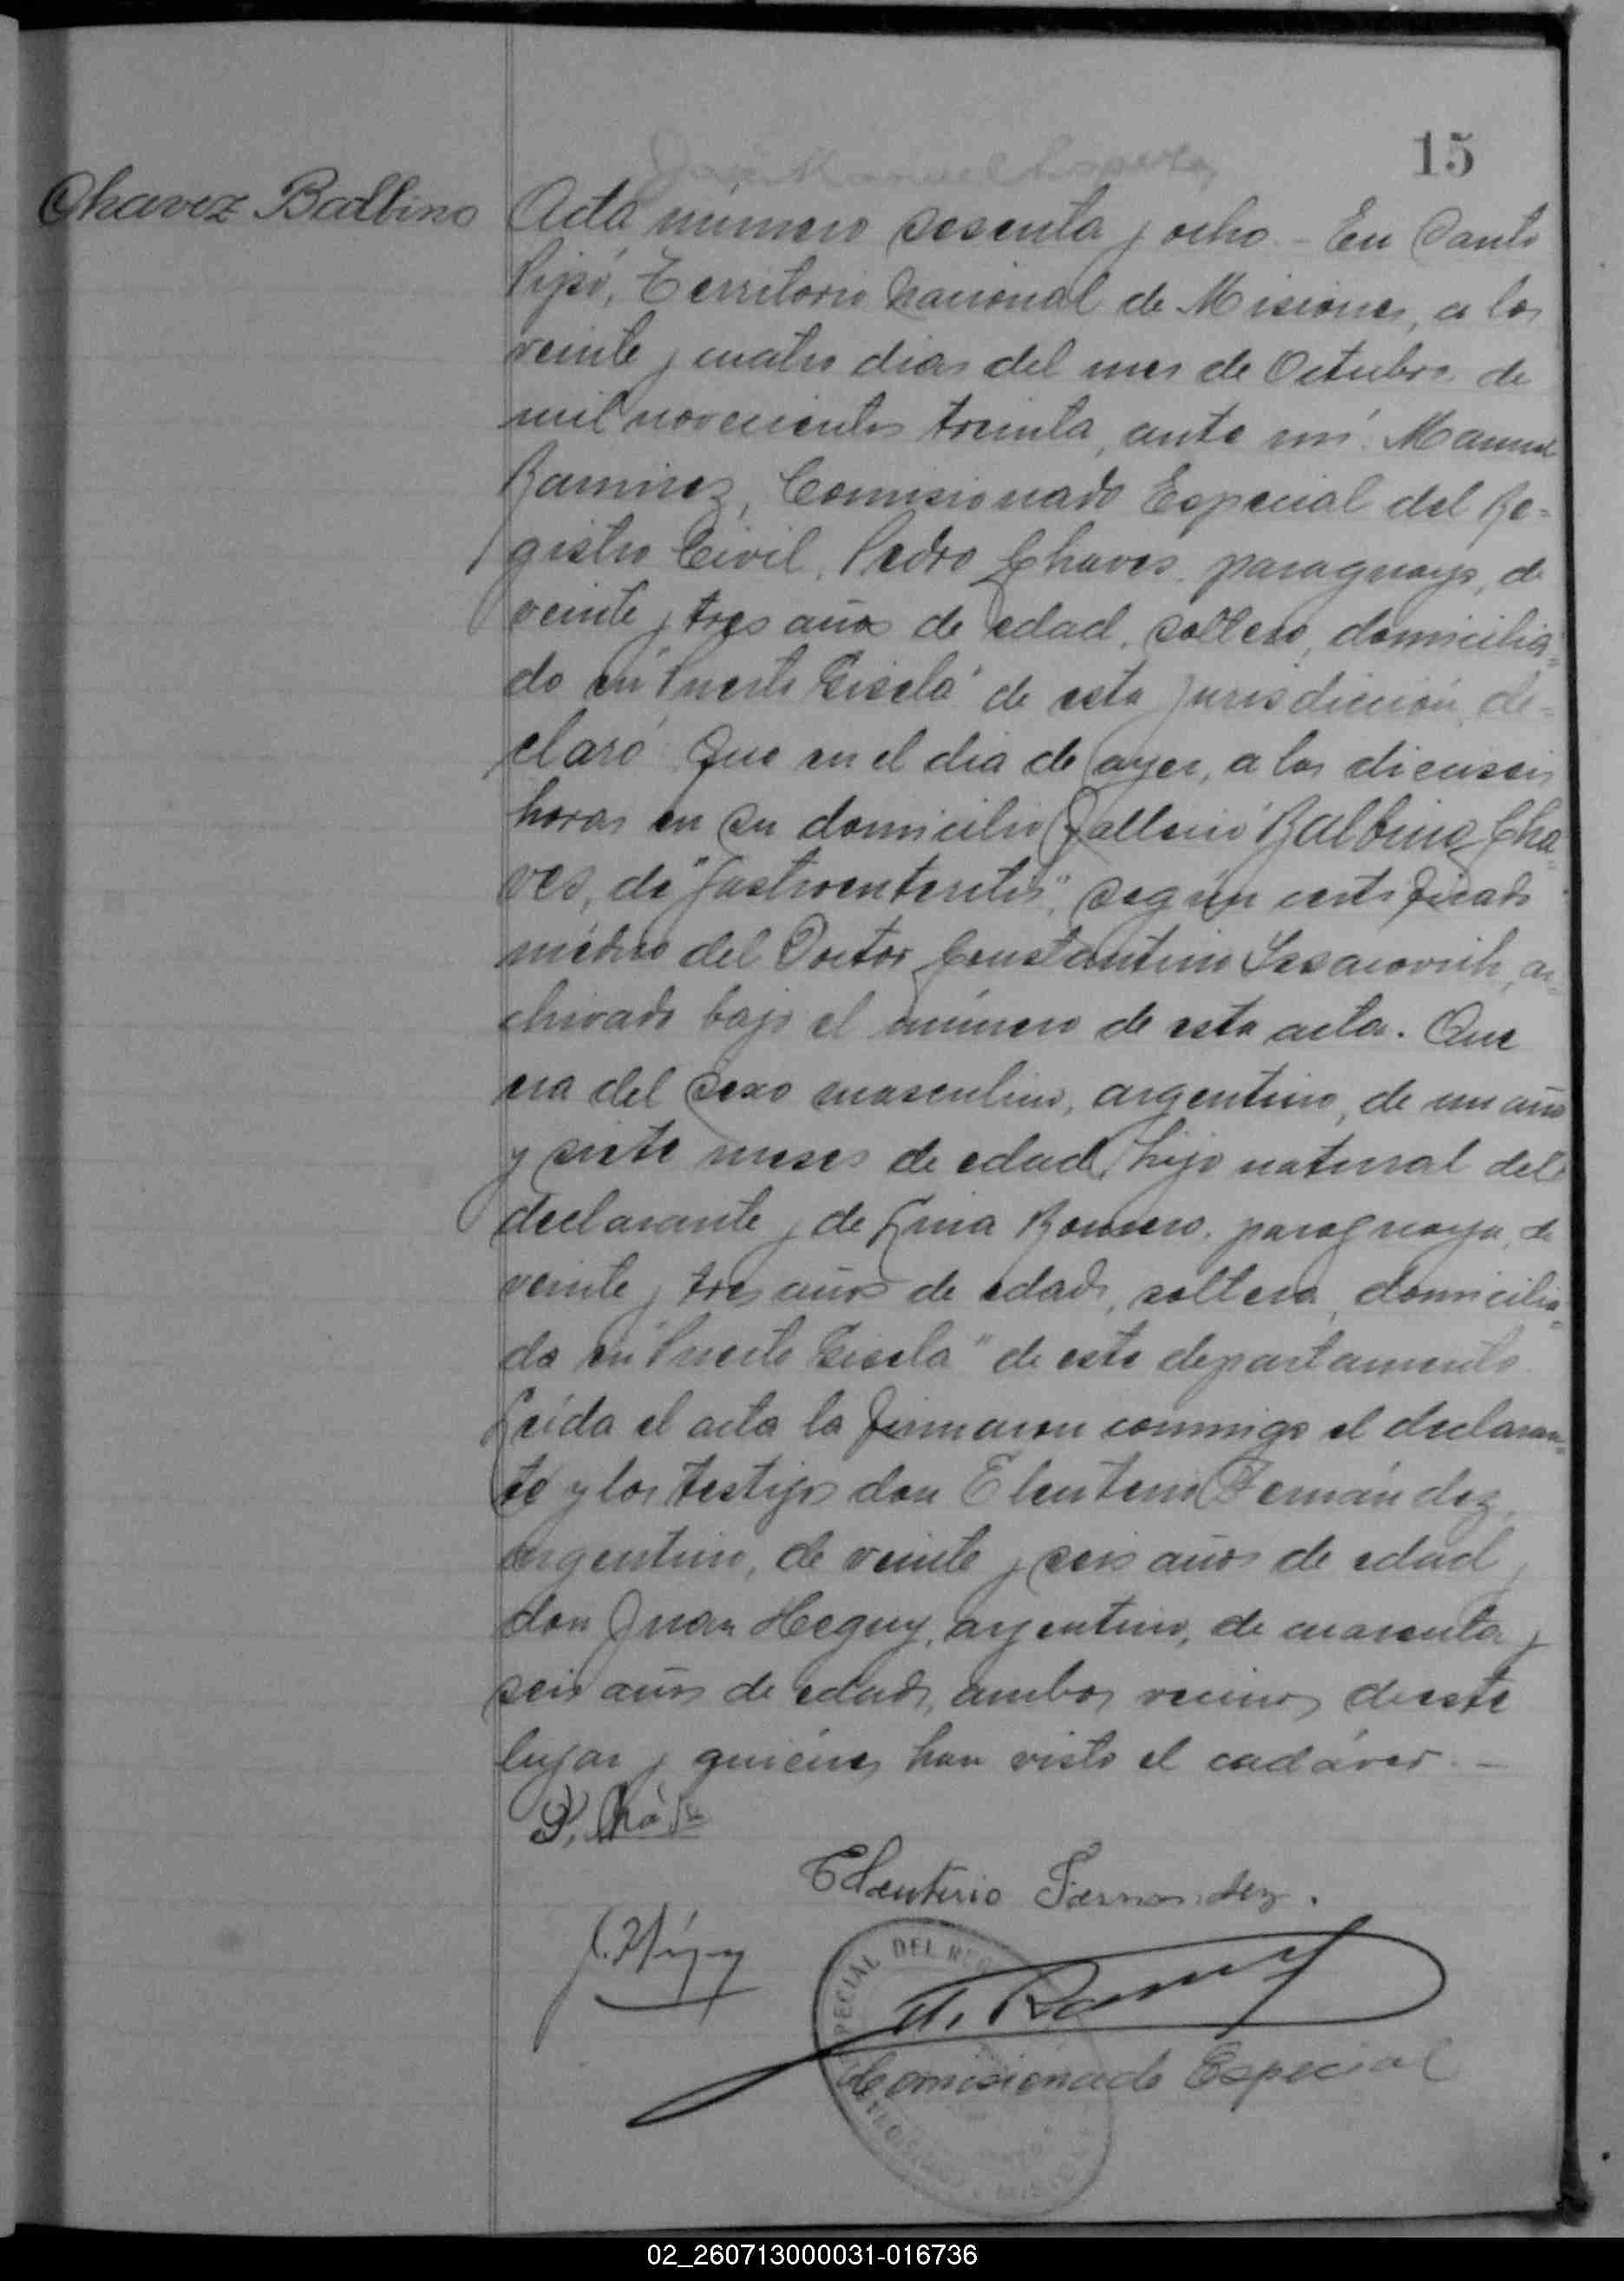 15
Chavez Balbino
Acta número sesenta y ocho. - En Santo
Pipó, Territorio Nacional de Misiones, a los
veinte y cuatro dias del mes de Octubre de
mil novecientos treinta, ante mí: Manuel
Ramirez, Comisionado Especial del Re=
gistro Civil, Pedro Chaves, paraguayo, de
veinte y tres años de edad, soltero, domicilia=
do en "Puerto Gisela" de esta jurisdicción, de=
claró: Que en el dia de ayer, a las dieciseis
horas en su domicilio falleció Balbino Cha=
ves, de "gastroenteritis", según certificado
médico del Doctor Constantino, ar=
chivado bajo el número de esta acta. Que
era del sexo masculino, argentino, de un año
y siete meses de edad, hijo natural del
declarante y de Romero, paraguaya, de
veinte y tres años de edad, soltera, domicilia=
da en "Puerto Gisela" de este departamento.
Leída el acta la firmaron conmigo el declaran=
te y los testigos don Eleuterio Fernández,
argentino, de veinte y seis años de edad y
don Juan Heguy, argentino, de cuarenta y
seis años de edad, ambos vecinos de este
lugar y quiénes han visto el cadáver. -
Eleuterio Fernandez.
DEL REG
M. Ramirez
Comisionado Especial
02_260713000031-016736